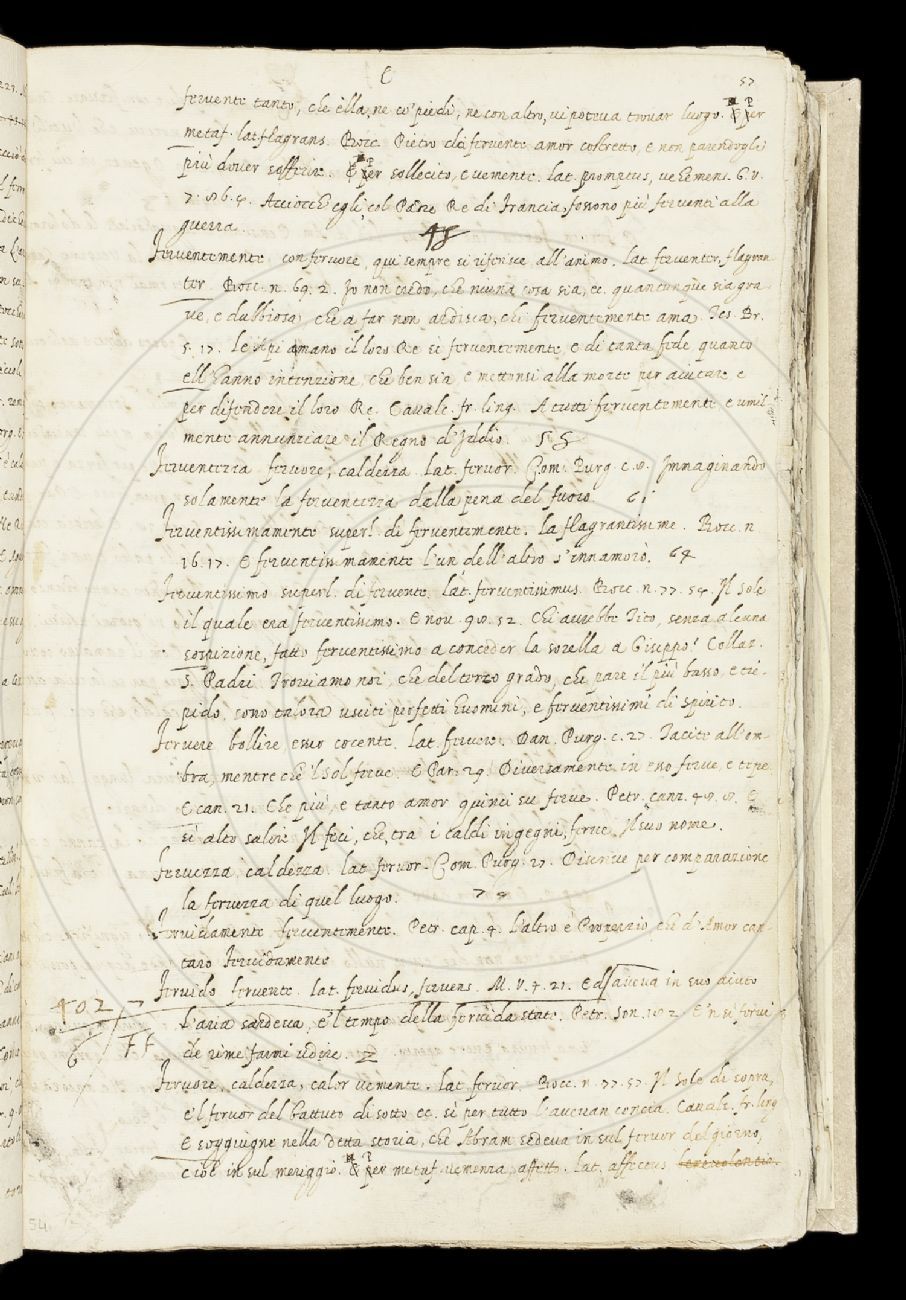 C
57
fervente tanto, che ella, ne co' piedi, ne con altro, vi poteva trovar luogo. & per
metaf. lat. flagrans. Bocc. Pietro da fervente amor costretto, e non parendogli
più dover sofferire. & per sollecito, e vemente. lat. promptus, vehemens. G. V.
7. 86. 4. Acciocch' egli, col Padre Re di Francia, fossono più ferventi alla
guerra.
45
Ferventemente con fervore, qui sempre si riferisce all'animo. lat. ferventer, flagran-
ter. Bocc. n. 69. 2. Io non credo, che niuna cosa sia, ec. quantunque sia gra-
ve, e dubbiosa, che a far non ardisca, chi ferventemente ama. Tes. Br.
5. 17. Le Api amano il loro Re sì ferventemente, e di tanta fede, quanto
ell' hanno intenzione, che ben sia, e mettonsi alla morte per aiutare e
per difendere il loro Re. Cavalc. fr. ling. A tutti ferventemente, e umil-
mente annunziare il Regno d'Iddio. 55
Ferventezza fervore, caldezza. lat. fervor. Com. Purg. c. 8. Immaginando
solamente la ferventezza della pena del fuoco. 61
Ferventissimamente superl. di ferventemente. la. flagrantissime. Bocc. n.
16. 17. E ferventissimamente l'un dell'altro s'innamorò. 64
Ferventissimo superl. di fervente. lat. ferventissimus. Bocc. n. 77. 54. Il sole
il quale era ferventissimo. E nov. 98. 52. Chi avrebbe Tito, senza alcuna
sospizione, fatto ferventissimo a conceder la sorella a Gisippo? Collaz.
S. Padri. Troviamo noi, che del terzo grado, che pare il più basso, e tie-
pido, sono talora usciti perfetti huomini, e ferventissimi di spirito.
Fervere bollire, esser cocente. lat. fervere. Dan. Purg. c. 27. Tacite all'om-
bra, mentre che 'l Sol ferve. E Par. 29. Diversamente in esso ferve, e tepe.
E can. 21. Che più, e tanto amor quinci su ferve. Petr. canz. 48. 8. E
sì alto salire Il feci, che tra i caldi ingegni, ferve Il suo nome.
Fervezza, caldezza. lat. fervor. Com. Purg. 27. Discrive per comparazione
la fervezza di quel luogo. 7
Fervidamente ferventemente. Petr. cap. 4. L'altro è Properzio, che d'Amor can-
taro Fervidamente
Fervido fervente. lat. fervidus, fervens. M. V. 4. 21. Ed aveva in suo aiuto
L'aria sardesca, e 'l tempo della fervida state. Petr. son. 182. E 'n sì fervi-
de rime farmi udire.
402
6
FF
Fervore, caldezza, calor vemente. lat. fervor. Bocc. n. 77. 57. Il sole di sopra,
e 'l fervor del battuto di sotto ec. sì per tutto l'avevan concia. Cavalc. fr. ling.
E soggiugne nella detta storia, che Abram sedeva in sul fervor del giorno,
cioè in sul meriggio. & per metaf. vemenza, affetto. lat. affectus
54